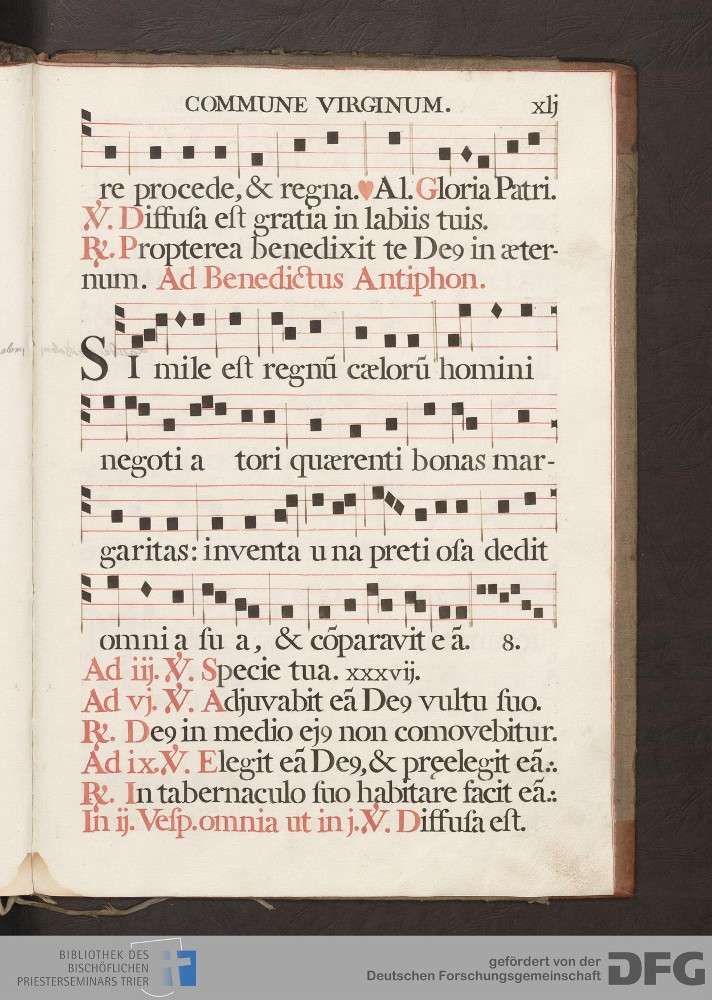 COMMUNE VIRGINUM. xlj
re procede, & regna. Al. Gloria Patri.
℣. Diffuſa eſt gratia in labiis tuis.
℟. Propterea benedixit te De9 in æter-
num. Ad Benedictus Antiphon.
SI mile eſt regnũ cælorũ homini
negoti a tori quærenti bonas mar-
garitas: inventa u na preti oſa dedit
omni a ſu a, & cõparavit e ã. 8.
Ad iij. ℣. Specie tua. xxxvij.
Ad vj. ℣. Adjuvabit eã De9 vultu ſuo.
℟. De9 in medio ej9 non comovebitur.
Ad ix. ℣. Elegit eã De9, & pręelegit eã.:.
℟. In tabernaculo ſuo habitare facit eã.:.
In ij. Veſp. omnia ut in j. ℣. Diffuſa eſt.
BIBLIOTHEK DES
BISCHÖFLICHEN
PRIESTERSEMINARS TRIER
gefördert von der
Deutschen Forschungsgemeinschaft
DFG